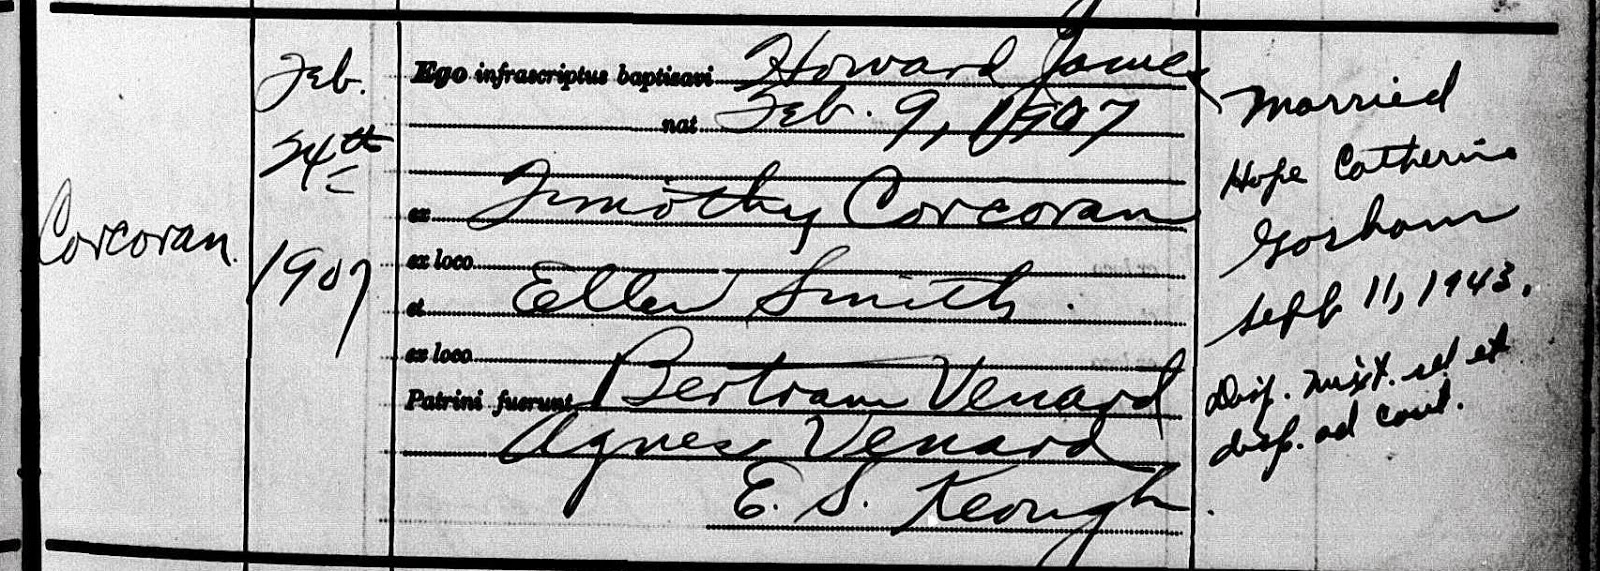 Corcoran.
Feb.
24th
1907
Ego infrascriptus baptisavi Howard James
nat Feb. 9, 1907
ex Timothy Corcoran
ex loco
et Ellen Smith.
ex loco
Patrini fuerunt Bertram Venard
Agnes Venard
E. S. Keough.
Married
Hope Catherine
Gorham
Sept 11, 1943.
Disp. mixt. rel et
disp. ad caut.